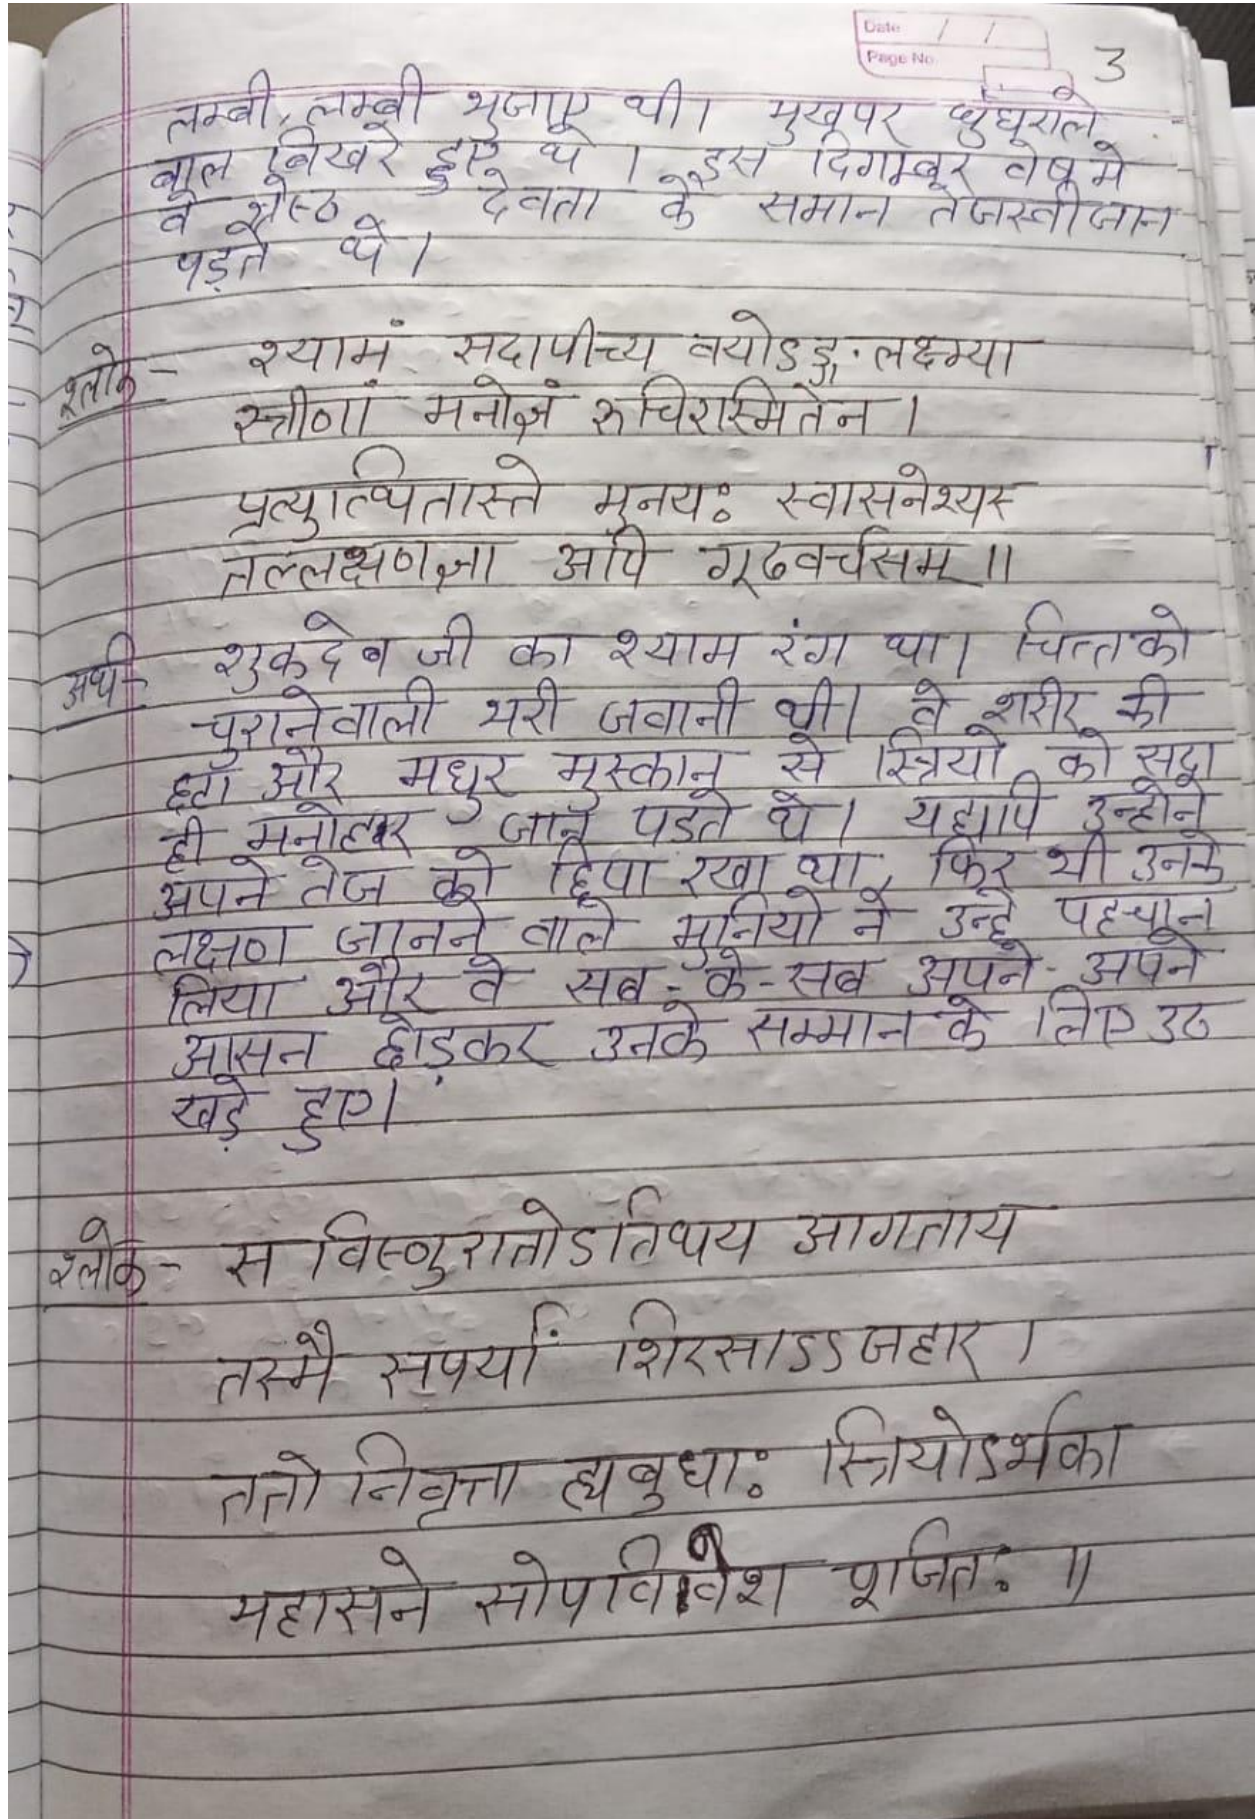 Date / /
Page No.
3
लम्बी, लम्बी भुजाए थी। मुखपर घुंघुराले
बाल बिखरे हुए थे। इस दिगम्बर वेष मे
वे श्रेष्ठ देवता के समान तेजस्वी जान
पड़ते थे।
श्लोक - श्यामं सदापीच्य वयोऽङ्ग. लक्ष्म्या
स्त्रीणां मनोज्ञं रुचिरस्मितेन।
प्रत्युत्थितास्ते मुनयः स्वासनेभ्यस्
तल्लक्षणज्ञा अपि गूढवर्चसम् ॥
अर्थ - शुकदेव जी का श्याम रंग था। चित्तको
चुरानेवाली भरी जवानी थी। वे शरीर की
छटा और मधुर मुस्कान से स्त्रियो को सदा
ही मनोहर जान पडते थे। यद्यपि उन्होने
अपने तेज को छिपा रखा था, फिर भी उनके
लक्षण जानने वाले मुनियो ने उन्हे पहचान
लिया और वे सब-के-सब अपने-अपने
आसन छोड़कर उनके सम्मान के लिए उठ
खड़े हुए।
श्लोक - स विष्णुरातोऽतिथय आगताय
तस्मै सपर्यां शिरसाऽऽजहार।
ततो निवृत्ता ह्यबुधाः स्त्रियोऽर्भका
महासने सोपविवेश पूजितः ॥